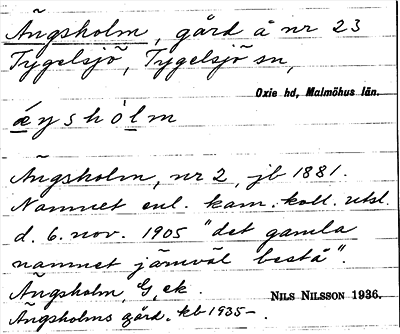 Ängsholm, gård å nr 23
Tygelsjö, Tygelsjö sn,
Oxie hd, Malmöhus län.
ǽŋshòlm
Ängsholm, nr 2, jb 1881.
Namnet enl. kam. koll. utsl.
d. 6. nov. 1905 "det gamla
namnet jämväl bestå".
Ängsholm, G, ek.
NILS NILSSON 1936.
Ängsholms gård. kb 1935-.